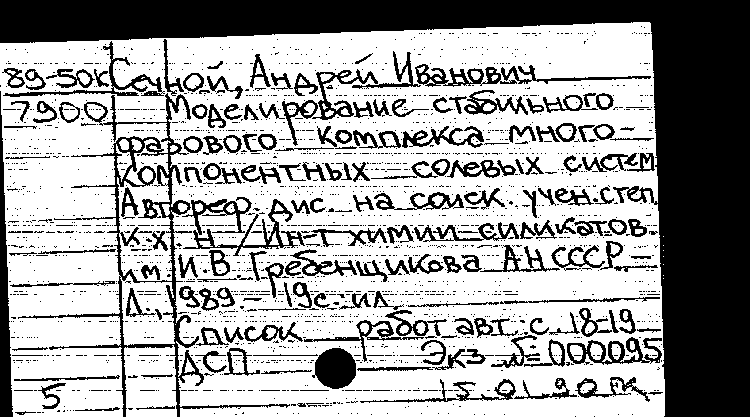 89-50к Сечной, Андрей Иванович
7900 Моделирование стабильного
фазового комплекса много-
компонентных солевых систем
Автореф. дис. на соиск. учен. степ.
к.х.н. / Ин-т химии силикатов
им. И.В. Гребенщикова АН СССР. -
Л., 1989. - 19с.: ил.
Список работ авт.: с. 18-19
ДСП. Экз. №=000095
5 15.01.90